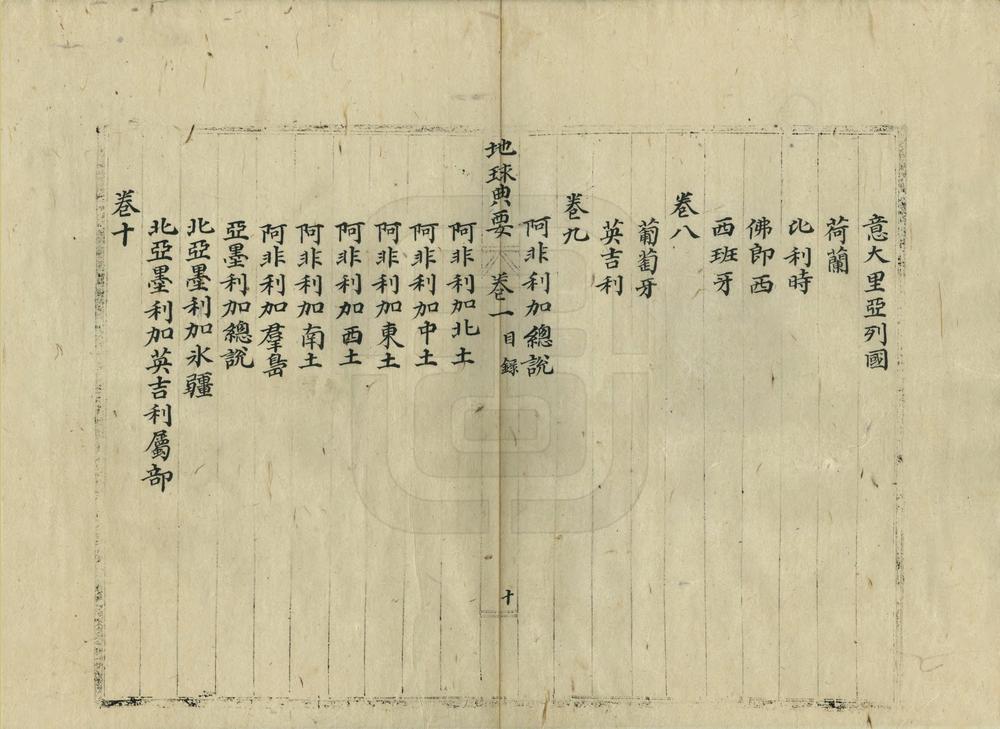 意大里亞列國
荷蘭
比利時
佛郎西
西班牙
卷八
葡萄牙
英吉利
卷九
阿非利加總說
地球典要 卷一 目錄 十
阿非利加北土
阿非利加中土
阿非利加東土
阿非利加西土
阿非利加南土
阿非利加羣島
亞墨利加總說
北亞墨利加氷疆
北亞墨利加英吉利屬部
卷十